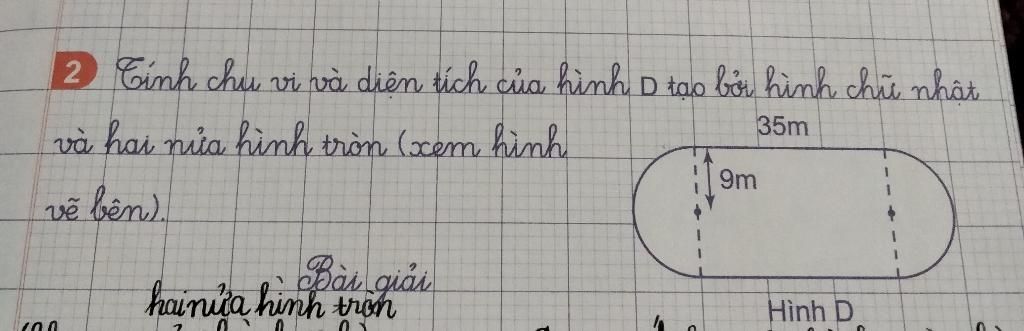 2 Tính chu vi và diện tích của hình D tạo bởi hình chữ nhật
và hai nửa hình tròn (xem hình
vẽ bên).
35m
9m
Hình D
Bài giải
hai nửa hình tròn